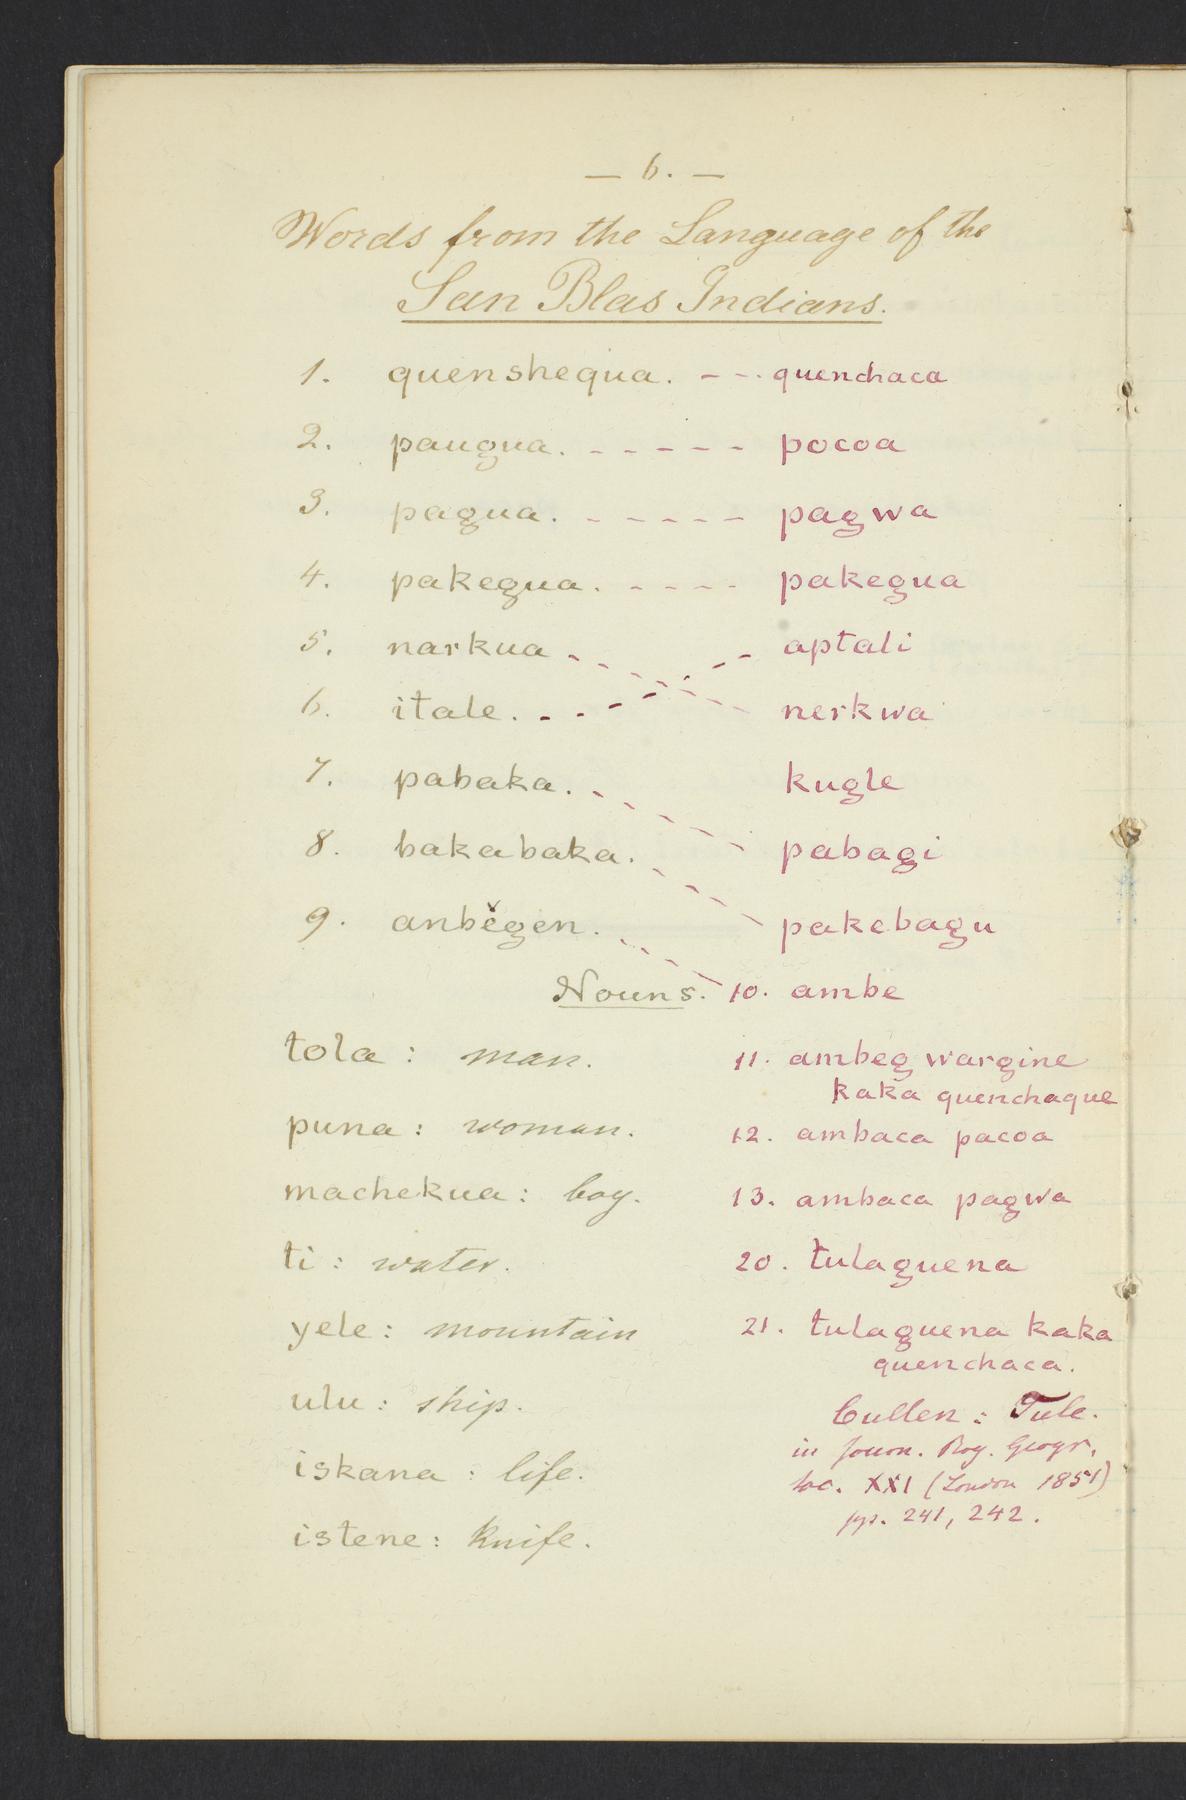 — 6. —
Words from the Language of the
San Blas Indians.
1. quenshequa. - - . quenchaca
2. paugua. - - - - - pocoa
3. pagua. - - - - - pagwa
4. pakegua. - - - - pakegua
5. narkua - - - aptali
6. itale. - - - - nerkwa
7. pabaka. - - - kugle
8. bakabaka. - - - pabagi
9. anbĕgen. - - - pakebagu
Nouns. 10. ambe
tola : man. 11. ambeg wargine
kaka quenchaque
puna : woman. 12. ambaca pacoa
machekua : boy. 13. ambaca pagwa
ti : water. 20. tulaguena
yele : mountain 21. tulaguena kaka
quenchaca.
ulu : ship. Cullen : Tule.
in Journ. Roy. Geogr.
iskana : life. Soc. XXI (London 1851)
pp. 241, 242.
istene : knife.